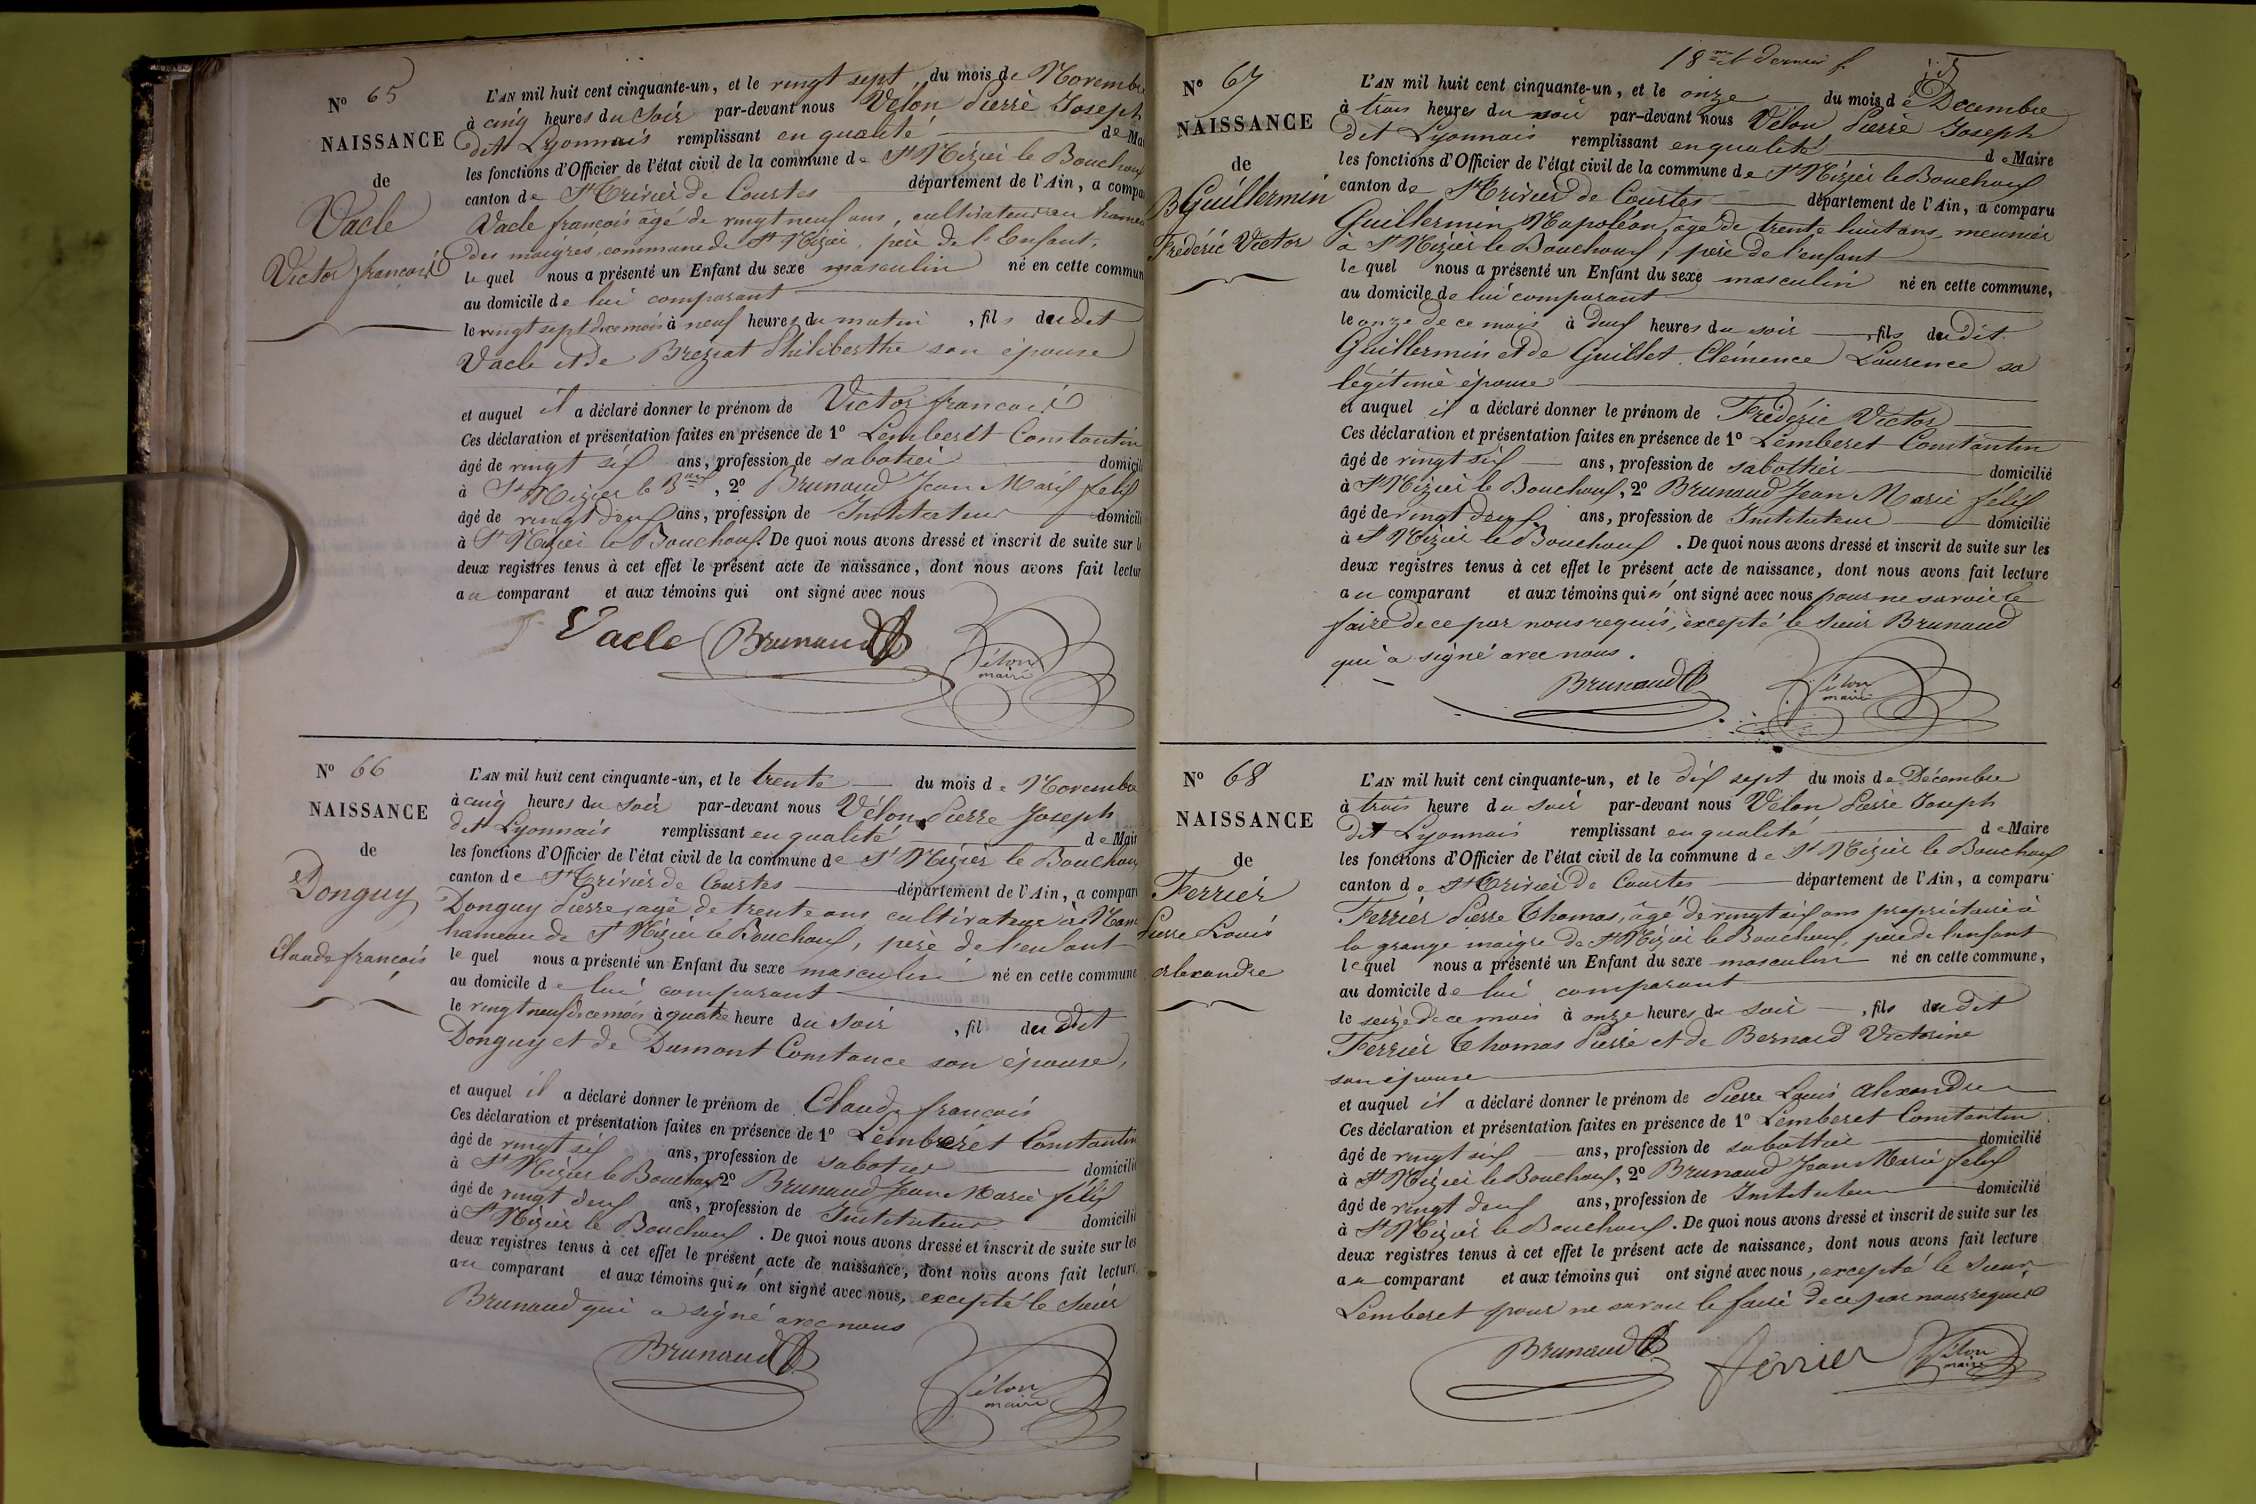 N° 65
NAISSANCE
de
Vacle
Victor françois
L'AN mil huit cent cinquante-un, et le vingt sept du mois de Novembre
à cinq heures du soir par-devant nous Vélon Pierre Joseph
dit Lyonnais remplissant en qualité de Mai
les fonctions d'Officier de l'état civil de la commune de St Nizier le Bouchoux
canton de St Trivier de Courtes département de l'Ain, a compa
Vacle françois âgé de vingt neuf ans, cultivateur au hameau
des maigres, commune de St Nizier, père de l'Enfant,
le quel nous a présenté un Enfant du sexe masculin né en cette commun
au domicile de lui comparant
le vingt sept de ce mois à neuf heures du matin , fils du dit
Vacle et de Breziat Philiberthe son épouse
et auquel il a déclaré donner le prénom de Victor françois
Ces déclaration et présentation faites en présence de 1° Lemberet Constantin
âgé de vingt six ans, profession de sabotier domicili
à St Nizier le Boux, 2° Brunaud Jean Marie felix
âgé de vingt deux ans, profession de Instituteur domicili
à St Nizier le Bouchoux. De quoi nous avons dressé et inscrit de suite sur l
deux registres tenus à cet effet le présent acte de naissance, dont nous avons fait lectur
au comparant et aux témoins qui ont signé avec nous
Vacle Brunaud Vélon
maire
N° 66
NAISSANCE
de
Donguy
Claude françois
L'AN mil huit cent cinquante-un, et le trente du mois de Novembre
à cinq heures du soir par-devant nous Vélon Pierre Joseph
dit Lyonnais remplissant en qualité de Mair
les fonctions d'Officier de l'état civil de la commune de St Nizier le Bouchoux
canton de St Trivier de Courtes département de l'Ain, a compar
Donguy Pierre, âgé de trente ans cultivateur à
hameau de St Nizier le Bouchoux, père de l'enfant
le quel nous a présenté un Enfant du sexe masculin né en cette commune
au domicile de lui comparant
le vingt neuf de ce mois à quatre heure du soir , fil du dit
Donguy et de Dumont Constance son épouse,
et auquel il a déclaré donner le prénom de Claude françois
Ces déclaration et présentation faites en présence de 1° Lemberet Constantin
âgé de vingt six ans, profession de sabotier domicilié
à St Nizier le Bouchoux 2° Brunaud Jean Marie félix
âgé de vingt deux ans, profession de Instituteur domicilié
à St Nizier le Bouchoux. De quoi nous avons dressé et inscrit de suite sur les
deux registres tenus à cet effet le présent acte de naissance, dont nous avons fait lecture
au comparant et aux témoins qui n'ont signé avec nous, excepté le sieur
Brunaud qui a signé avec nous
Brunaud Vélon
maire
18me et dernier f.
N° 67
NAISSANCE
de
Guillermin
Frédéric Victor
L'AN mil huit cent cinquante-un, et le onze du mois de Décembre
à trois heures du soir par-devant nous Vélon Pierre Joseph
dit Lyonnais remplissant en qualité de Maire
les fonctions d'Officier de l'état civil de la commune de St Nizier le Bouchoux
canton de St Trivier de Courtes département de l'Ain, a comparu
Guillermin Napoléon, âgé de trente huit ans, meunier
à St Nizier le Bouchoux, père de l'enfant
le quel nous a présenté un Enfant du sexe masculin né en cette commune,
au domicile de lui comparant
le onze de ce mois à deux heures du soir , fils du dit
Guillermin et de Guillet Clémence Laurence sa
légitime épouse
et auquel il a déclaré donner le prénom de Frédéric Victor
Ces déclaration et présentation faites en présence de 1° Lemberet Constantin
âgé de vingt six ans, profession de sabothier domicilié
à St Nizier le Bouchoux, 2° Brunaud Jean Marie félix
âgé de vingt deux ans, profession de Instituteur domicilié
à St Nizier le Bouchoux. De quoi nous avons dressé et inscrit de suite sur les
deux registres tenus à cet effet le présent acte de naissance, dont nous avons fait lecture
au comparant et aux témoins qui n'ont signé avec nous pour ne savoir le
faire de ce par nous requis, excepté le sieur Brunaud
qui a signé avec nous.
Brunaud Vélon
maire
N° 68
NAISSANCE
de
Ferrier
Pierre Louis
alexandre
L'AN mil huit cent cinquante-un, et le dix sept du mois de Décembre
à trois heure du soir par-devant nous Vélon Pierre Joseph
dit Lyonnais remplissant en qualité de Maire
les fonctions d'Officier de l'état civil de la commune de St Nizier le Bouchoux
canton de St Trivier de Courtes département de l'Ain, a comparu
Ferrier Pierre Thomas, âgé de vingt six ans propriétaire à
la grange maigre de St Nizier le Bouchoux, père de l'enfant
lequel nous a présenté un Enfant du sexe masculin né en cette commune,
au domicile de lui comparant
le seize de ce mois à onze heures du soir , fils du dit
Ferrier Thomas Pierre et de Bernard Victorine
son épouse
et auquel il a déclaré donner le prénom de Pierre Louis alexandre
Ces déclaration et présentation faites en présence de 1° Lemberet Constantin
âgé de vingt six ans, profession de sabottier domicilié
à St Nizier le Bouchoux, 2° Brunaud Jean Marie felix
âgé de vingt deux ans, profession de Instituteur domicilié
à St Nizier le Bouchoux. De quoi nous avons dressé et inscrit de suite sur les
deux registres tenus à cet effet le présent acte de naissance, dont nous avons fait lecture
au comparant et aux témoins qui ont signé avec nous, excepté le sieur
Lemberet pour ne savoir le faire de ce par nous requis
Brunaud ferrier Vélon
maire